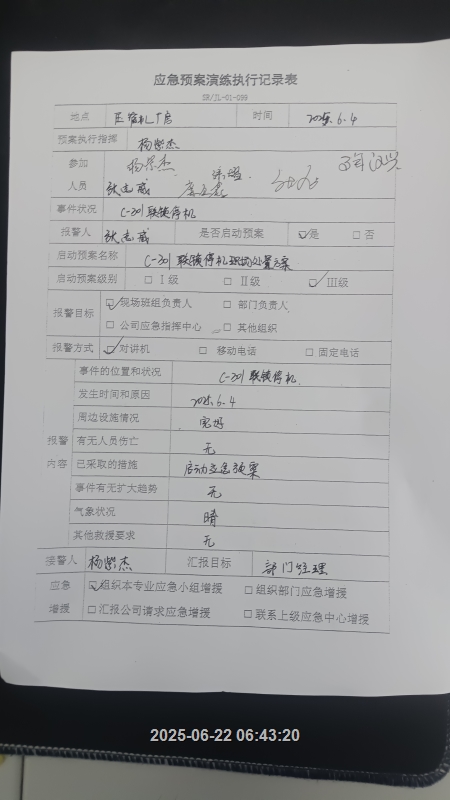 应急预案演练执行记录表
SH/JL-01-099
地点 压缩机厂房 时间 2025.6.4
预案执行指挥 杨紫杰
参加 杨紫杰
人员 张志威
事件状况 C-301联锁停机
报警人 张志威 是否启动预案 ☑是 □否
启动预案名称 C-301联锁停机现场处置方案
启动预案级别 □Ⅰ级 □Ⅱ级 ☑Ⅲ级
报警目标 ☑现场班组负责人 □部门负责人
□公司应急指挥中心 □其他组织
报警方式 ☑对讲机 □移动电话 □固定电话
事件的位置和状况 C-301联锁停机
发生时间和原因 2025.6.4
周边设施情况 完好
报警 有无人员伤亡 无
内容 已采取的措施 启动应急预案
事件有无扩大趋势 无
气象状况 晴
其他救援要求 无
接警人 杨紫杰 汇报目标 部门经理
应急 ☑组织本专业应急小组增援 □组织部门应急增援
增援 □汇报公司请求应急增援 □联系上级应急中心增援
2025-06-22 06:43:20